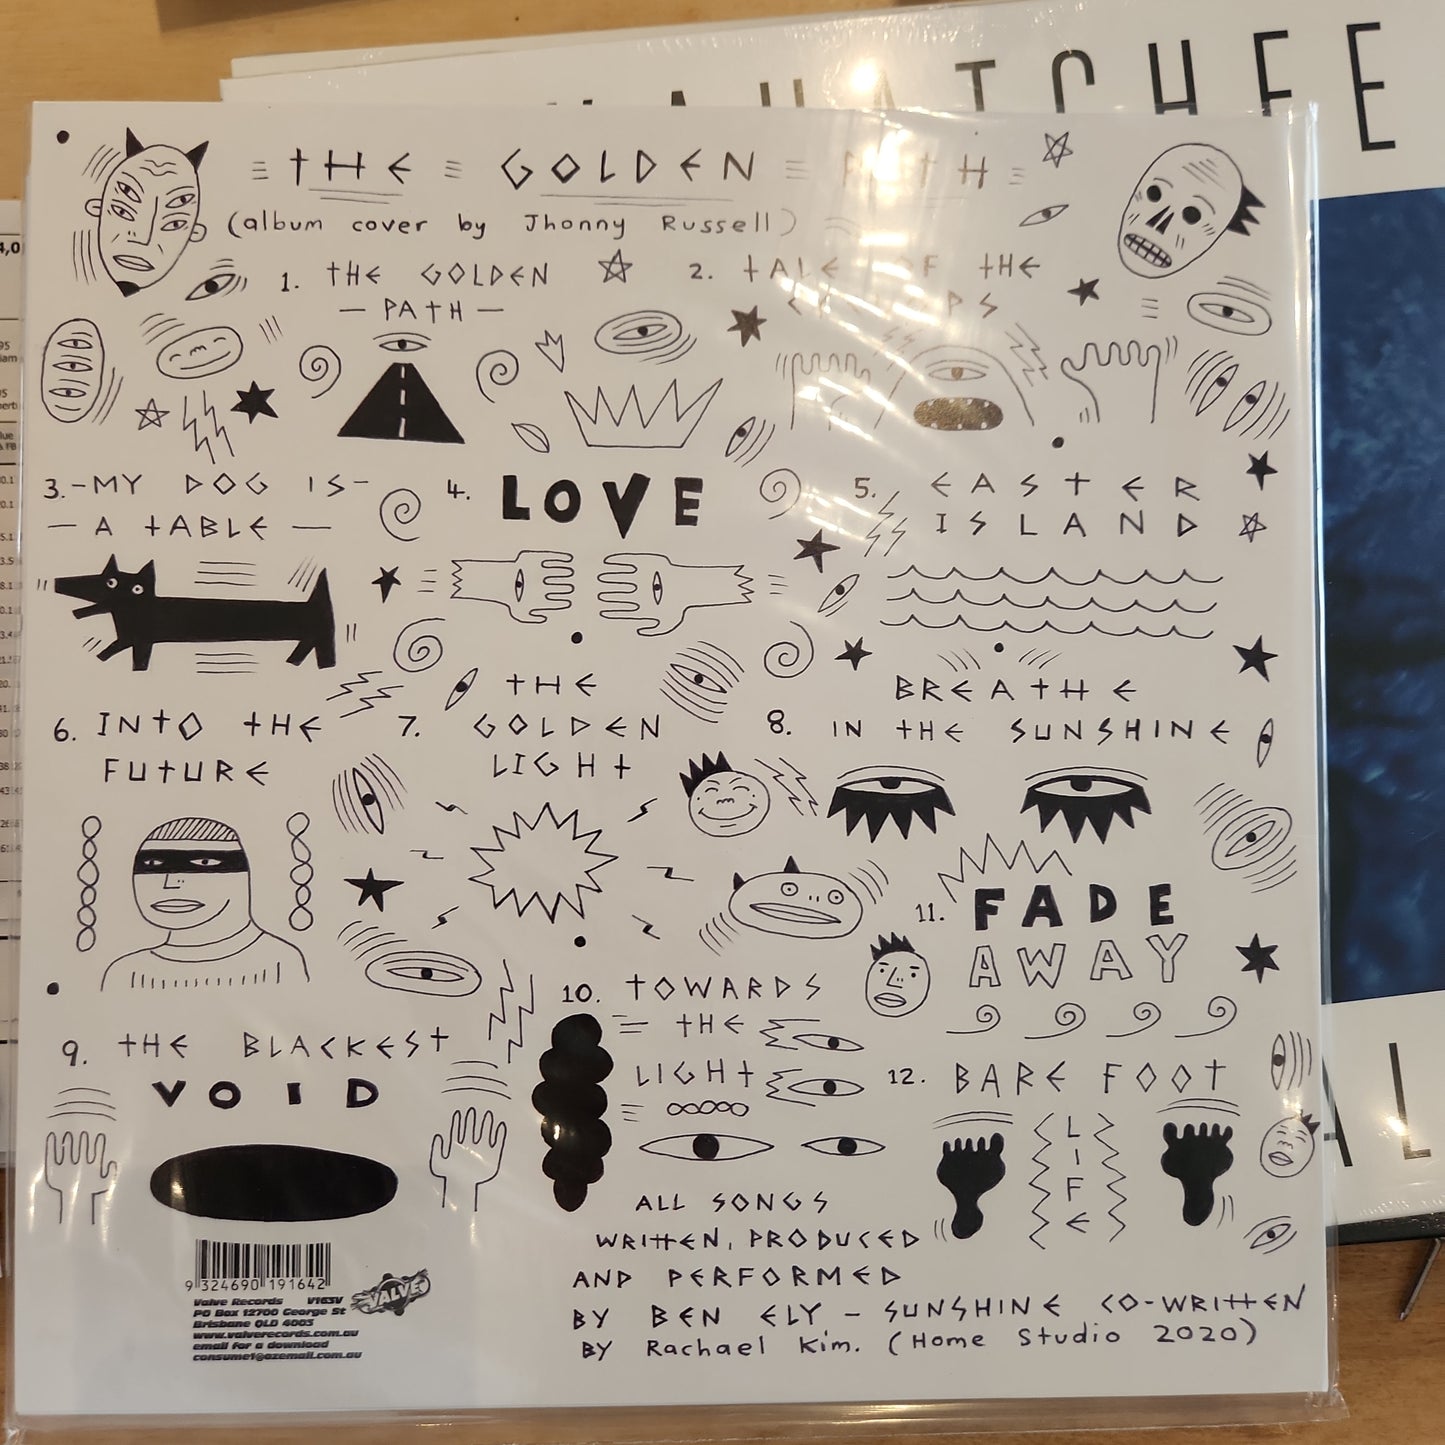 WAHATCHEE
THE GOLDEN PATH
(album cover by Jhonny Russell)
1. THE GOLDEN
- PATH -
2. TALE OF THE
CYCLOPS
3. -MY DOG IS-
- A TABLE -
4. LOVE
5. EASTER
ISLAND
6. INTO THE
FUTURE
7. THE
GOLDEN
LIGHT
8. BREATHE
IN THE SUNSHINE
9. THE BLACKEST
VOID
10. TOWARDS
THE
LIGHT
11. FADE
AWAY
12. BARE FOOT
LIFE
ALL SONGS
WRITTEN, PRODUCED
AND PERFORMED
BY BEN ELY - SUNSHINE CO-WRITTEN
BY Rachael Kim. (Home Studio 2020)
9 324690 191642
VALVE
Valve Records V163V
PO Box 12700 George St
Brisbane QLD 4003
www.valverecords.com.au
email for a download
consume1@ozemail.com.au
AL